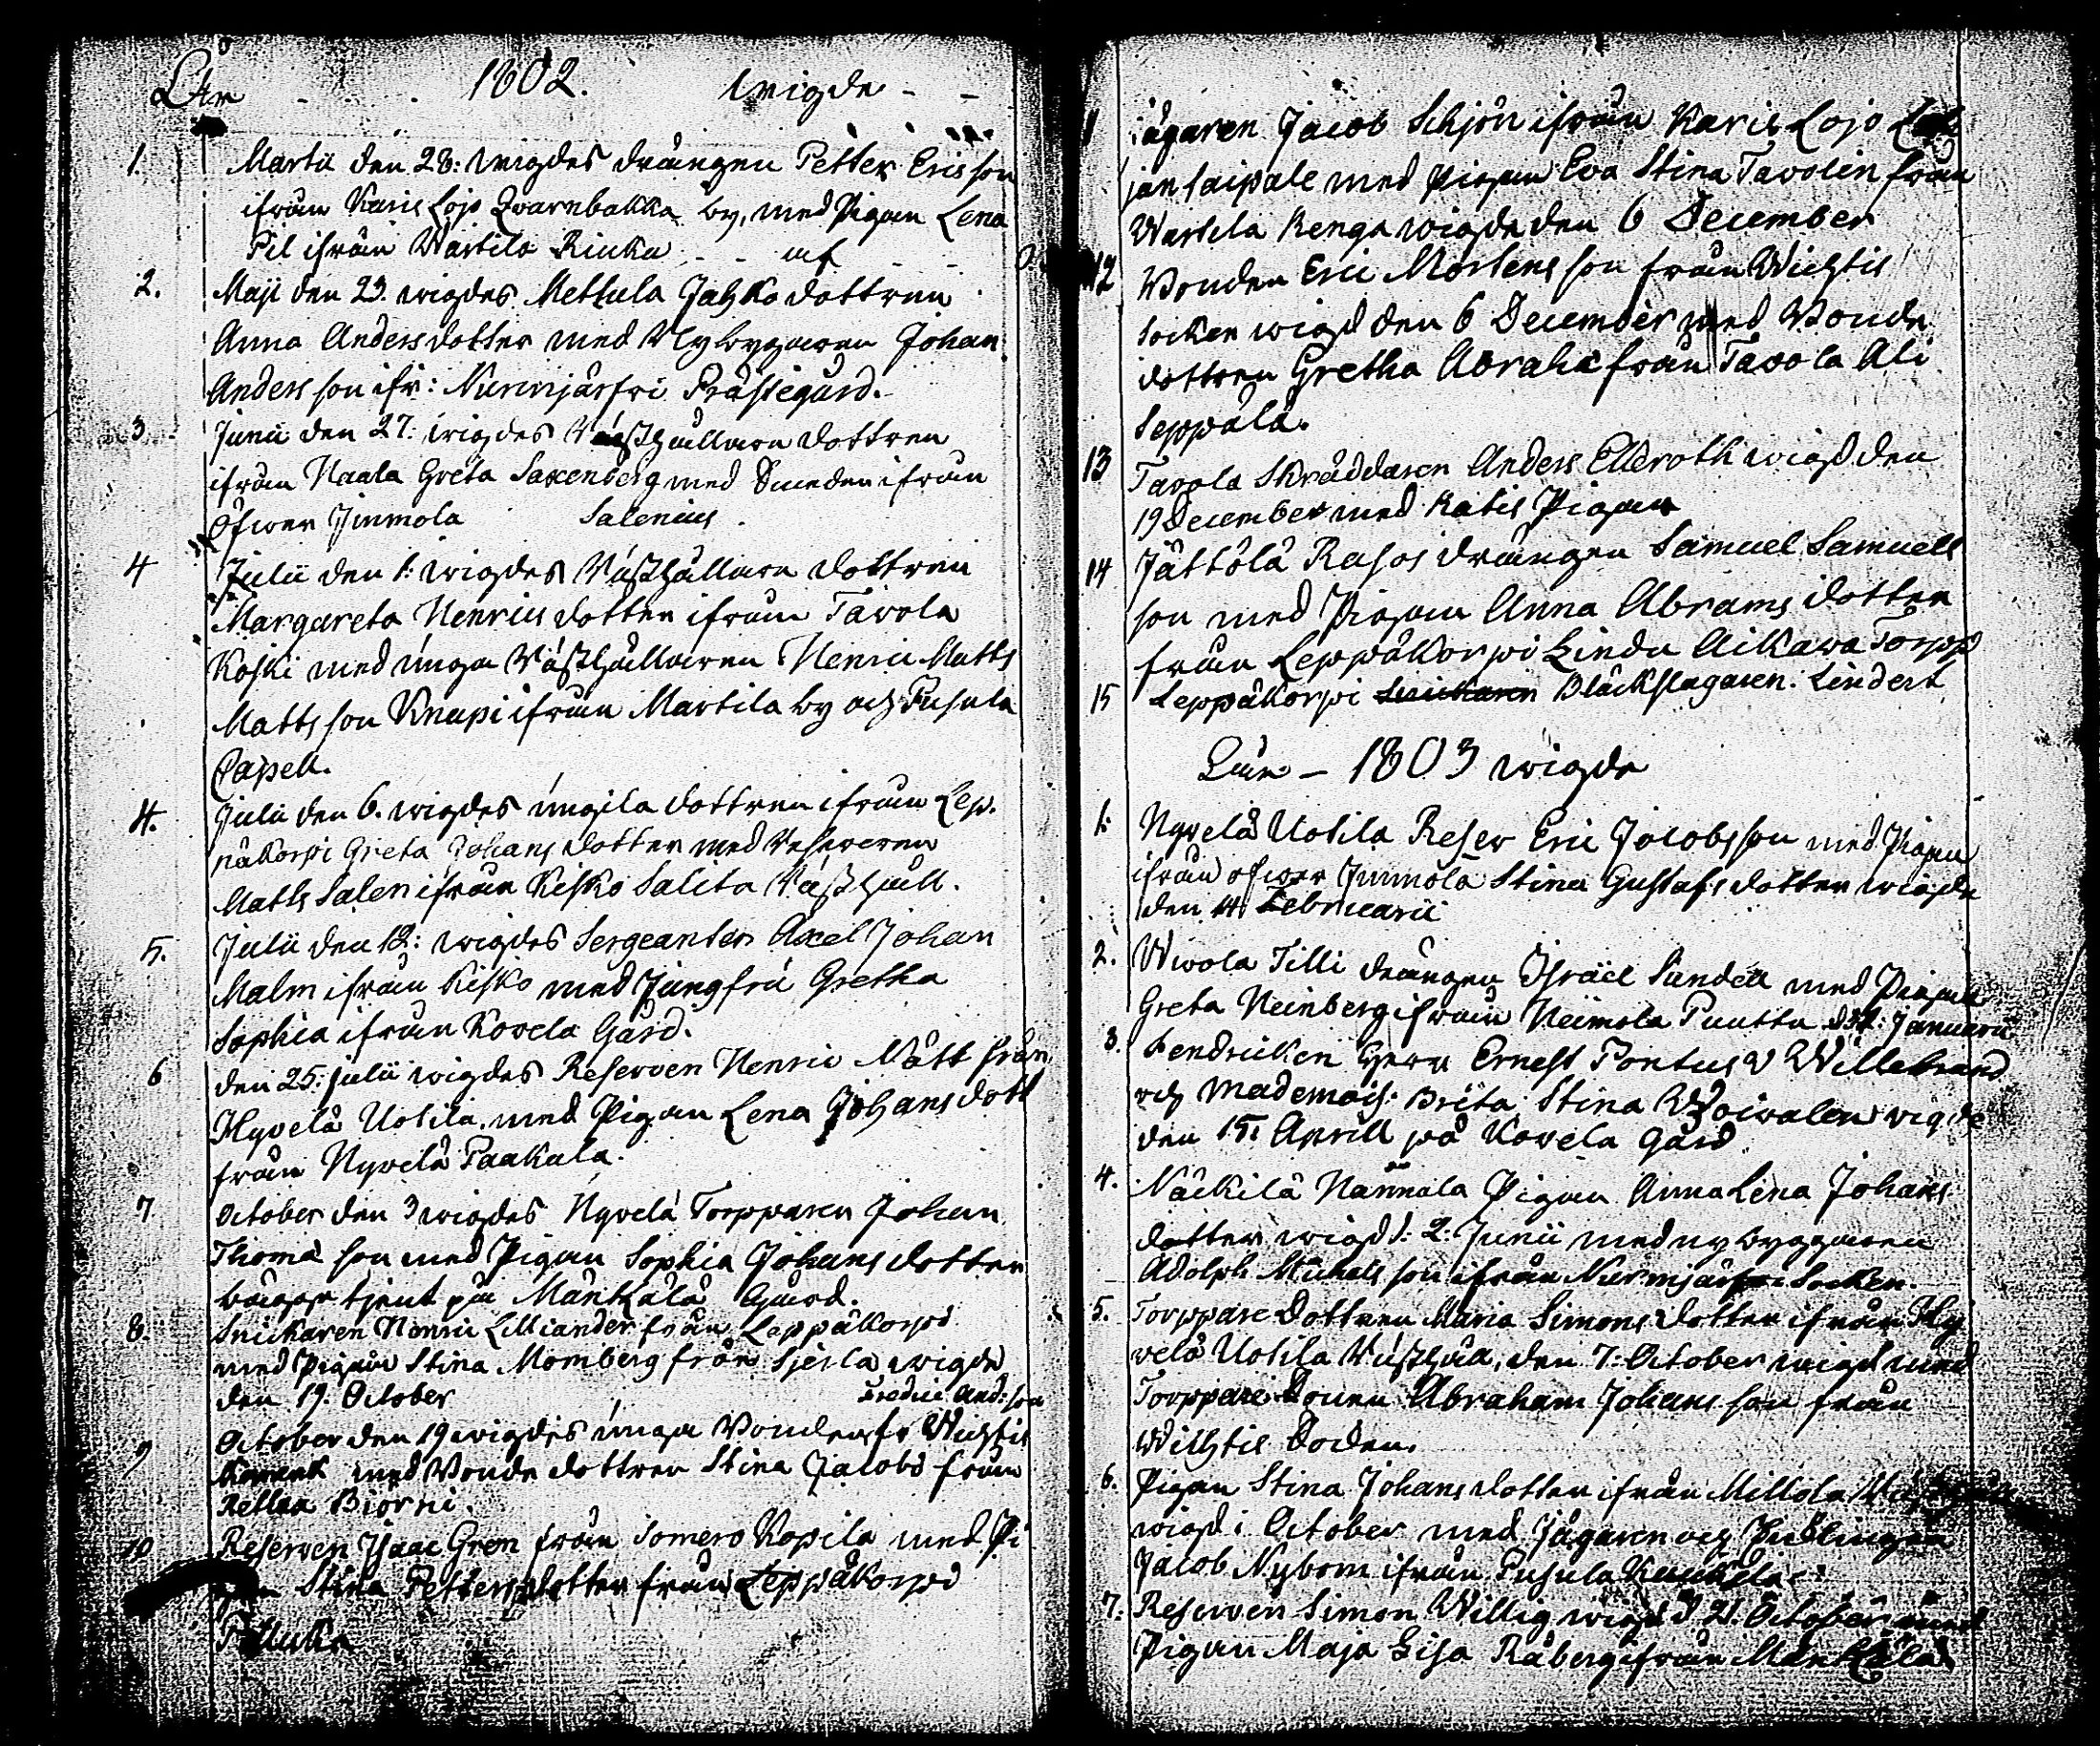 År 1802. wigde
1. Martii den 28: wigdes drängen Petter Ericsson
ifrån Karis Lojo Qvarnbakka by, med Pigan Lena
Pil ifrån Wartila Rinka
2. Maji den 23. wigdes Mettula Jahko dottren
Anna Andersdotter med Nybyggaren Johan
Andersson ifr: Nurmjärfvi Prästegård.
3. Junii den 27: wigdes Rusthållare dottren
ifrån Haala Greta Saxenberg med Smeden ifrån
Öfwer Immola Salenius.
4 Julii den 1: wigdes Rusthållare dottren
Margareta Henrics dotter ifrån Tavola
Koski med unga Rusthållaren Henric Matts
Mattsson Knapi ifrån Martila by och Pusula
Capell.
4. Julii den 6. wigdes ungila dottren ifrån Lep-
päkorpi Greta Johans dotter med Reserven
Matts Salen ifrån Kisko Salita Rusthåll.
5. Julii den 12: wigdes Sergeanten Axel Johan
Malm ifrån Kisko med Jungfru Gretha
Sophia ifrån Kovela Gård.
6 den 25: Julii wigdes Reserven Henric Nått från
Hyvelä Uotila, med Pigan Lena Johansdott
från Nyvelä Paakala.
7 October den 3 wigdes Hyvelä Torpparen Johan
Thomasson med Pigan Sophia Johansdotter
bägge tjent på Mankälä Gård.
8. Snickaren Henric Lilliander från Leppäkorpi
med pigan Stina Momberg från Sjerla wigde
den 19. October
Fredric And:son
9 October den 19 wigdes unga Bonden fr Wichtis
med Bonde dottren Stina Jacobs från
Retlaa Biörni.
10 Reserven Isaac Gren från Somero Kopila med Pi
gan Stina Pettersdotter från Leppäkorpi
11 jägaren Jacob Schjön ifrån Karis Lojo
jansaipale med pigan Eva Stina Tavolin från
Wartila Kenga wigde den 6 December
12 Bonden Eric Mortensson från Wichtis
socken wigd den 6 December med Bonde
dottren Gretha Abraha från Tavola Ali
Seppälä.
13 Tavola Skräddaren Anders Elldroth wigd den
19 December med Katis Pigan
14 Jättölä Rasos drängen Samuel Samuels
son med Pigan Anna Abrams dotter
från Leppäkorpi Linda Aikawa Torpp
15 Leppäkorpi Snickaren Bläckslagaren. Lindert
1803 wigde
1. Nyvelä Uotila Reserv Eric Jacobsson med Pigan
ifrån öfwer Immola Stina Gustafsdotter wigde
den 14 Februarii
2. Wivola Tilli drängen Israel Sundell med Pigan
Greta Heinberg ifrån Heimola Puutta Januarii
3. Fendricken Herr Ernest Pontus v Willebrand
och Mademois: Brita Stina Woivalen vigde
den 15. Aprill på Kovela gård.
4. Näckilä Nännala Pigan Anna Lena Johans
dotter wigd d: 2: Junii med nybyggaren
Adolph Michelsson ifrån Nurmjärfvi Socken.
5. Torppare Dottren Maria Simons dotter ifrån Hy
velä Uotila Rusthåll, den 7: October wigd med
Torppare Sonen Abraham Johansson från
Wichtis Socken.
6. Pigan Stina Johansdotter ifrån Millola
wigd i October med Jägaren och
Jacob Nybom ifrån Pusula
7: Reserven Simon Willig wigd d 21. October med
Pigan Maja Lisa Råberg ifrån Mankälä